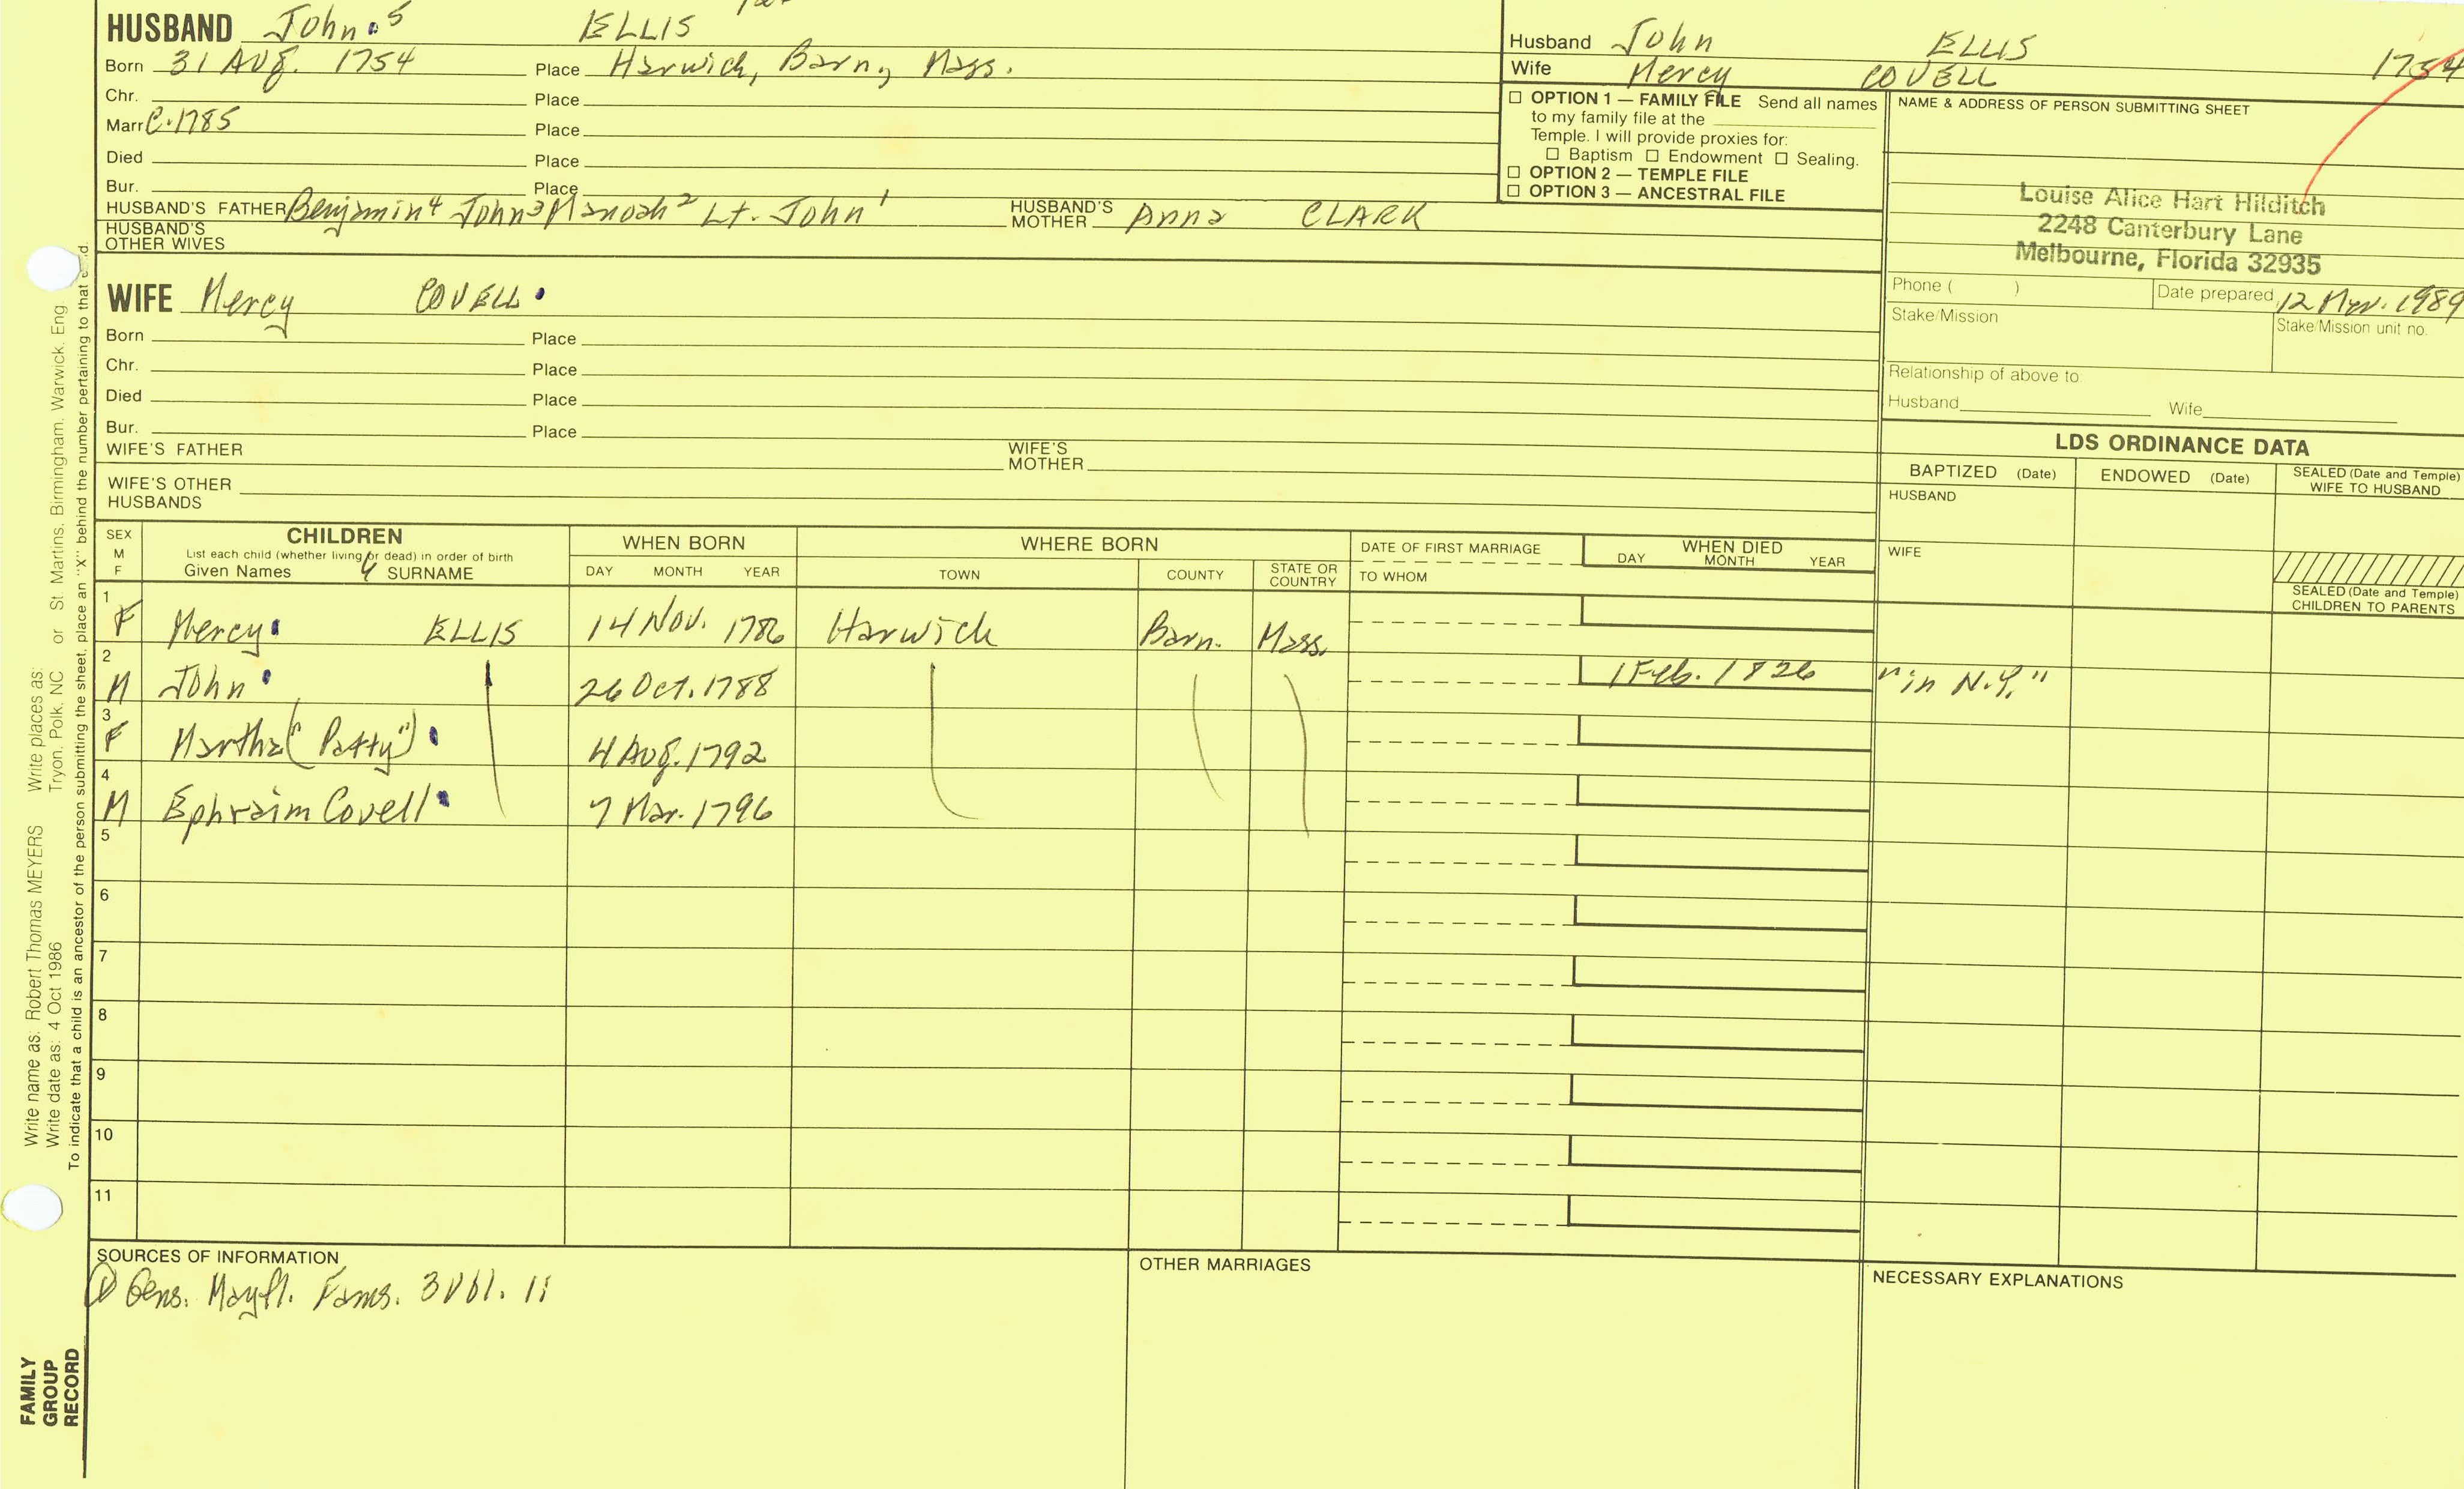 HUSBAND John 5 ELLIS
Born 31 Aug. 1754 Place Harwich, Barn., Mass.
Chr. Place
Marr C. 1785 Place
Died Place
Bur. Place
HUSBAND'S FATHER Benjamin 4 John 3 Manoah 2 Lt. John 1 HUSBAND'S MOTHER Anna CLARK
HUSBAND'S OTHER WIVES
Husband John ELLIS 1754
Wife Mercy COVELL
☐ OPTION 1 — FAMILY FILE Send all names
to my family file at the
Temple. I will provide proxies for:
☐ Baptism ☐ Endowment ☐ Sealing.
☐ OPTION 2 — TEMPLE FILE
☐ OPTION 3 — ANCESTRAL FILE
NAME & ADDRESS OF PERSON SUBMITTING SHEET
Louise Alice Hart Hilditch
2248 Canterbury Lane
Melbourne, Florida 32935
Phone ( ) Date prepared 12 1989
Stake/Mission Stake/Mission unit no.
Relationship of above to
Husband Wife
WIFE Mercy COVELL
Born Place
Chr. Place
Died Place
Bur. Place
WIFE'S FATHER WIFE'S MOTHER
WIFE'S OTHER HUSBANDS
LDS ORDINANCE DATA
BAPTIZED (Date) ENDOWED (Date) SEALED (Date and Temple) WIFE TO HUSBAND
HUSBAND
WIFE
SEALED (Date and Temple) CHILDREN TO PARENTS
SEX M F CHILDREN WHEN BORN WHERE BORN DATE OF FIRST MARRIAGE WHEN DIED
List each child (whether living or dead) in order of birth
4
Given Names SURNAME DAY MONTH YEAR TOWN COUNTY STATE OR COUNTRY TO WHOM DAY MONTH YEAR
1 F Mercy ELLIS 14 Nov. 1786 Harwich Barn. Mass.
2 M John 26 Oct. 1788 1 Feb. 1826 "in N.Y."
3 F Martha ("Patty") 4 Aug. 1792
4 M Ephraim Covell 7 Mar. 1796
5
6
7
8
9
10
11
SOURCES OF INFORMATION
① Gens. Mayfl. Fams. 3 Vol. 11
OTHER MARRIAGES
NECESSARY EXPLANATIONS
Write name as: Robert Thomas MEYERS Write places as: Tryon, Polk, NC or St Martins, Birmingham, Warwick, Eng
Write date as: 4 Oct 1986
To indicate that a child is an ancestor of the person submitting the sheet, place an "X" behind the number pertaining to that
FAMILY
GROUP
RECORD